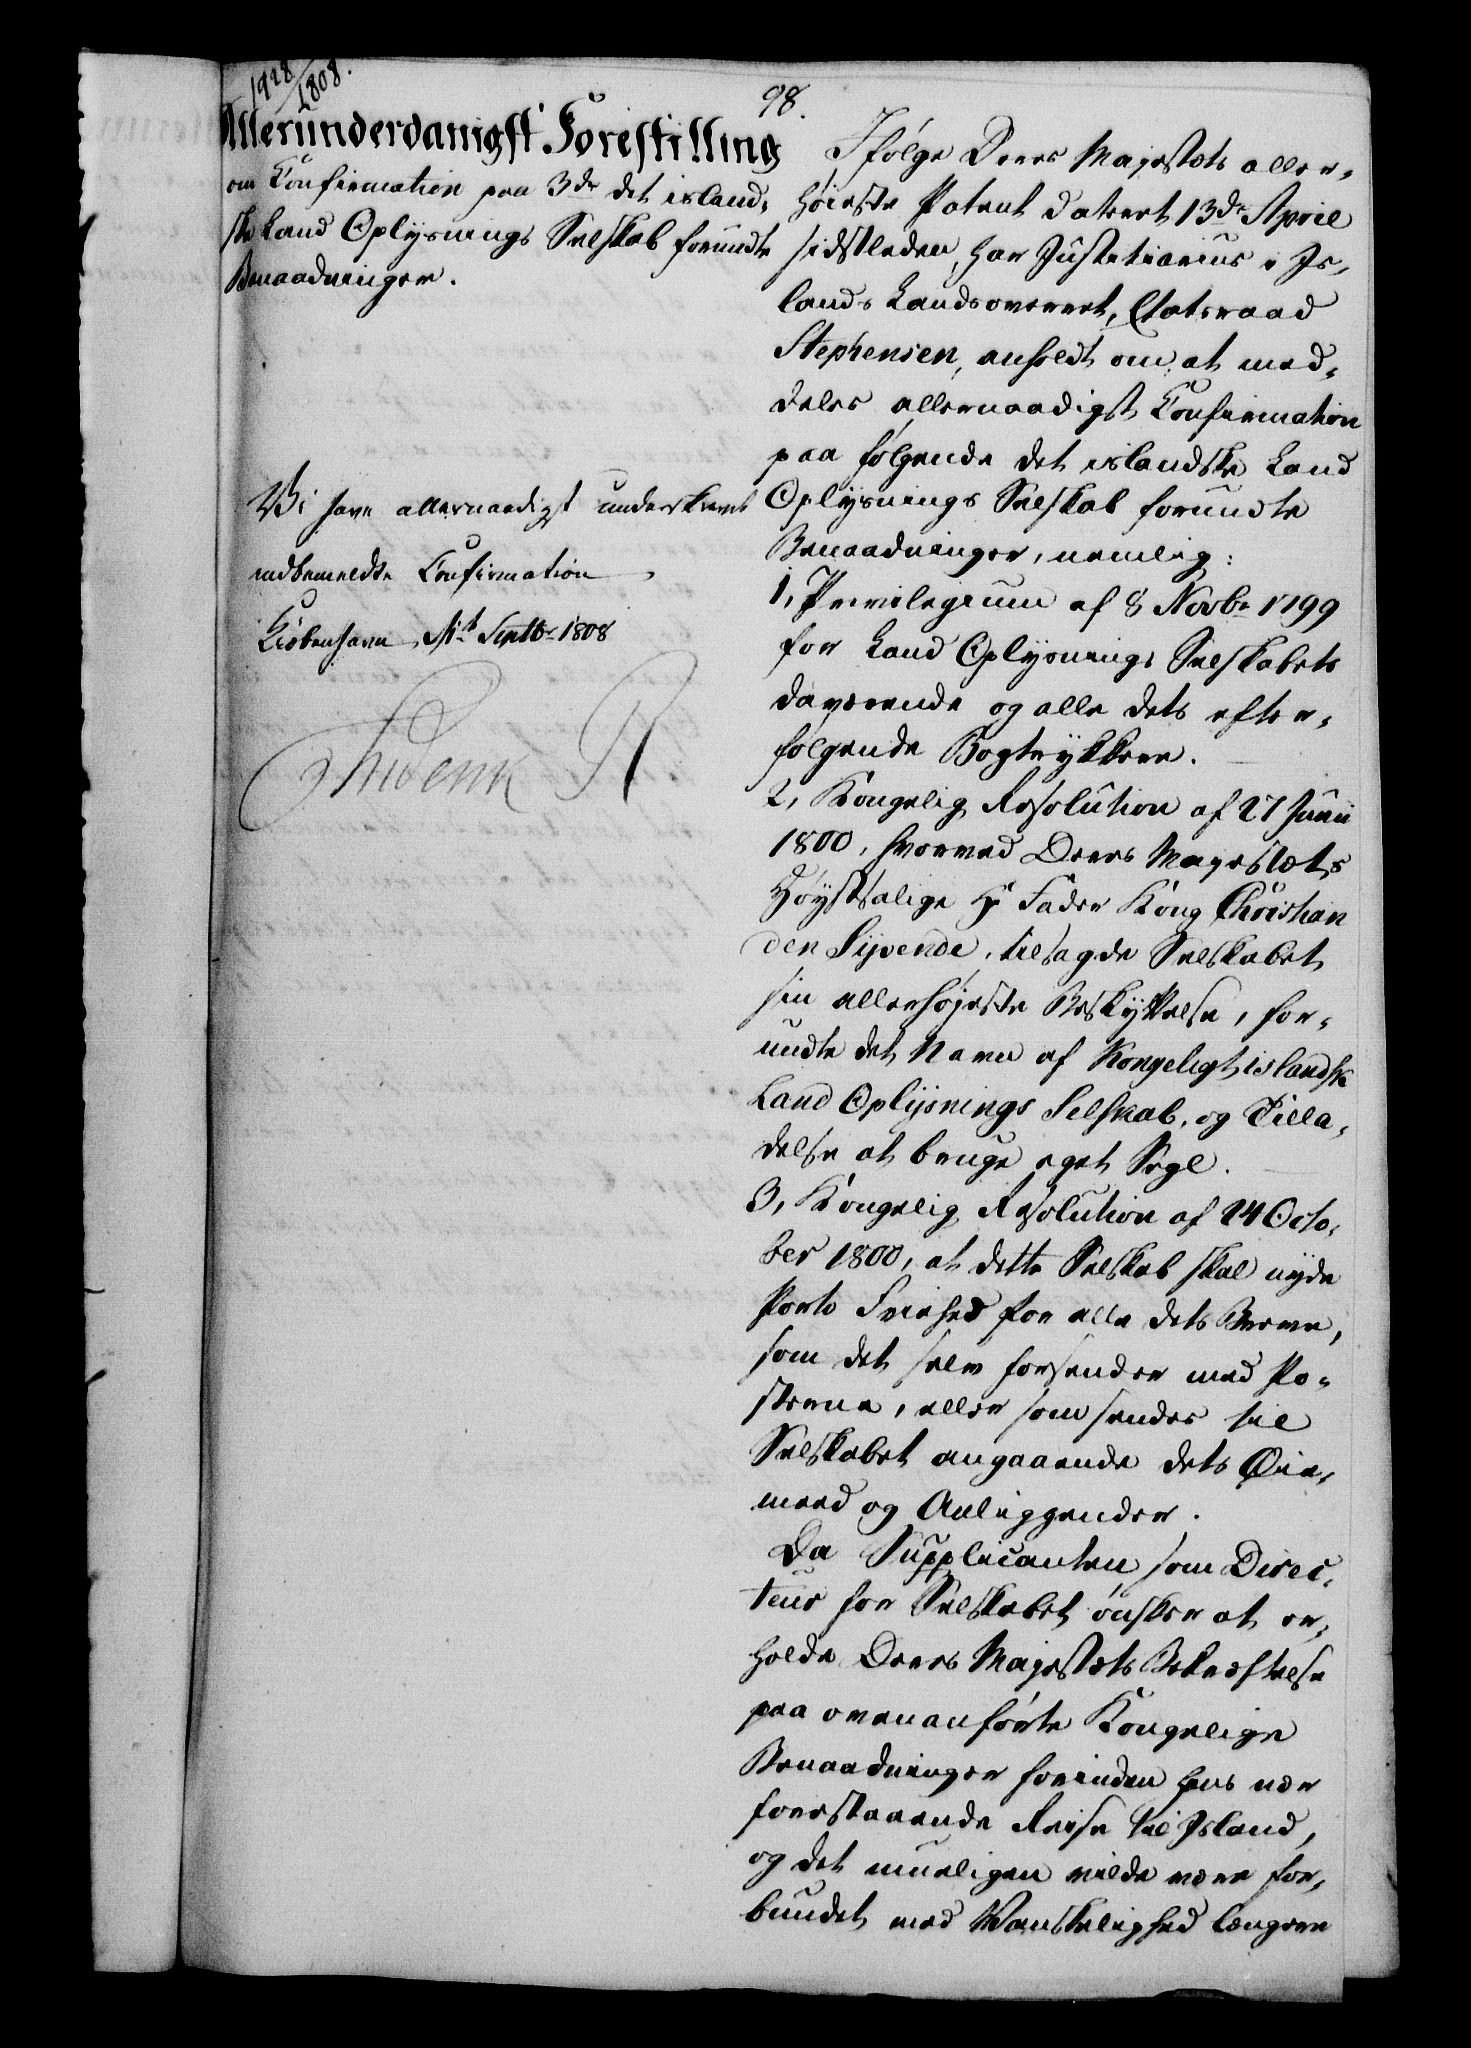 1928/1808.
98.
Allerunderdanigst Forestilling
om Confirmation paa 3de det island,
ske Land Oplysnings Selskab forundte
Benaadninger.
Vi have allernaadigst underskrevet
indbemeldte Confirmation
Kiöbenhavn, Septbr 1808
Friderik R
Ifølge Deres Majestæts aller,
høieste Patent dateret 13de April
sidstleden, har Justitiarius i Is,
lands Landsoverret, Etatsraad
Stephensen, anholdt om at med,
deles allernaadigst Confirmation
paa følgende det islandske Land
Oplysnings Selskab forundte
Benaadninger, nemlig:
1, Privilegium af 8 Novbr 1799
for Land Oplysnings Selskabets
daværende og alle dets efter,
følgende Bogtrykkere.
2, Kongelig Resolution af 27 Junii
1800, hvorved Deres Majestæts
Høystsalige Hr Fader Kong Christian
den Syvende, tilsagde Selskabet
sin allerhøjeste Beskyttelse, for,
undte det Navn af Kongeligt islandsk
Land Oplysnings Selskab, og Tilla,
delse at bruge eget Segl.
3, Kongelig Resolution af 24 Octo,
ber 1800, at dette Selskab skal nyde
Porto Friehed for alle dets Breve,
som det selv forsender med Po,
sterne, eller som sendes til
Selskabet angaaende dets Øie,
meed og Anliggender.
Da Supplicanten som Direc,
teur for Selskabet önsker at er,
holde Deres Majestæts Bekræftelse
paa ovenanførte Kongelige
Benaadninger forinden hans nær
forestaaende Reise til Island,
og det mueligen vilde være for,
bundet med Vanskelighed længere